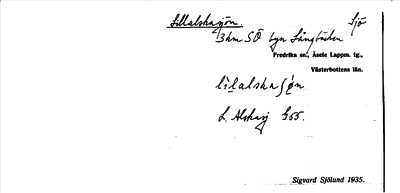 Lillalsksjön. Sjö
3 km SÖ byn Långbäcken
Fredrika sn., Åsele Lappm. tg.,
Västerbottens län.
L. Alsksj G55.
Sigvard Sjölund 1935.